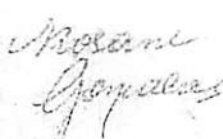 Rosane
Gonçalves